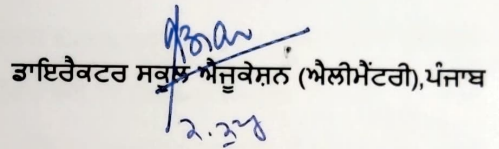 ਡਾਇਰੈਕਟਰ ਸਕੂਲ ਐਜੂਕੇਸ਼ਨ (ਐਲੀਮੈਂਟਰੀ),ਪੰਜਾਬ